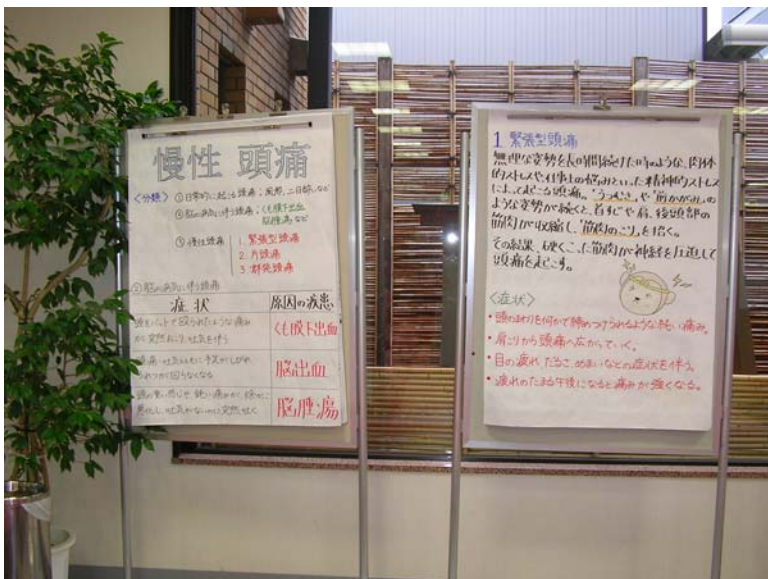 慢性 頭痛
〈分類〉 ①日常的に起こる頭痛；風邪、二日酔いなど
②脳の病気に伴う頭痛；くも膜下出血
脳腫瘍など
③慢性頭痛 1. 緊張型頭痛
2. 片頭痛
3. 群発頭痛
②脳の病気に伴う頭痛
症状 原因の疾患
頭をバットで殴られたような痛み
が突然おこり、吐気を伴う
くも膜下出血
頭痛・吐気とともに手足がしびれ
ろれつが回らなくなる
脳出血
頭の重い感じや鈍い痛みが、徐々に
悪化し、吐気がないのに突然吐く
脳腫瘍
1 緊張型頭痛
無理な姿勢を長時間続けた時のような、肉体
的ストレスや仕事上の悩みといった精神的ストレス
によって起こる頭痛。“うつむき”や“前かがみ”の
ような姿勢が続くと、首すじや肩、後頭部の
筋肉が収縮し、“筋肉のこり”を招く。
その結果、硬くこった筋肉が神経を圧迫して
頭痛を起こす。
〈症状〉
・頭のまわりを何かで締めつけられるような鈍い痛み。
・肩こりから頭痛へ広がっていく。
・目の疲れ、だるさ、めまいなどの症状を伴う。
・疲れのたまる午後になると痛みが強くなる。